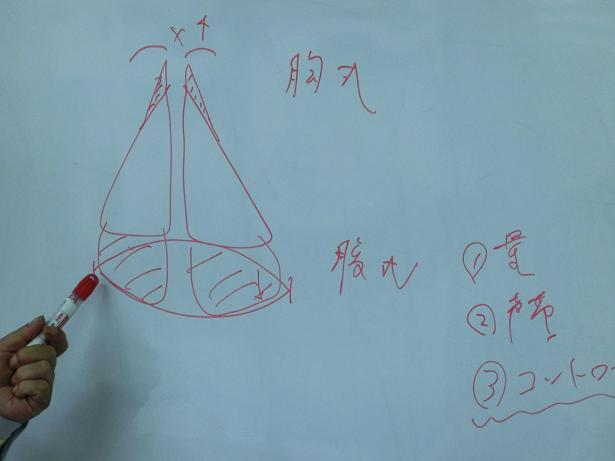 胸式
腹式
① 量
② 声帯
③ コントロー